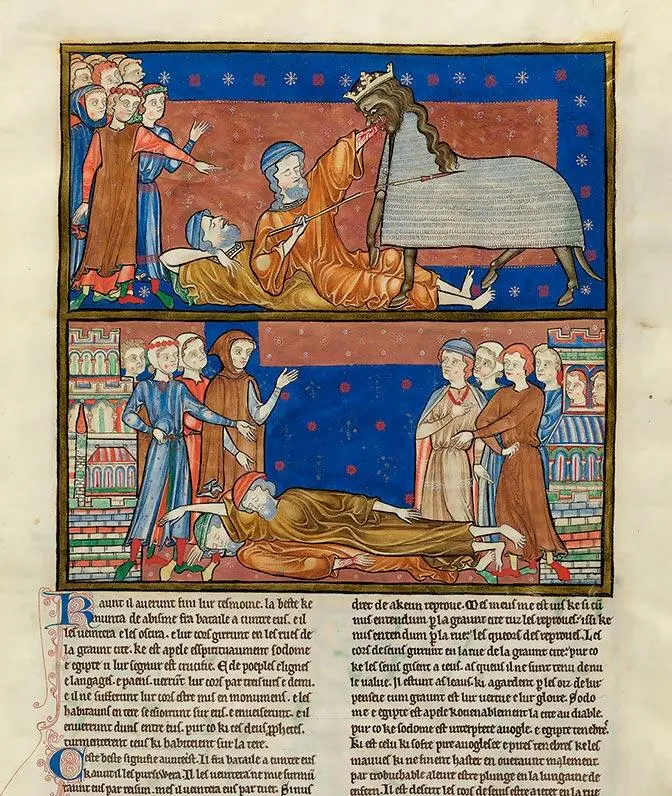 Kaunt il auerunt fini lur tesmoine. la beste ke
muntra de abisme fra bataile a cuntre eus. e il
les ueintera e les ocira. e lur cors girrunt en les rues de
la graunt cite. ke est apele espiritaument sodome
e egipte u lur segnur est crucifie. E de poeples e lignes
e langages. e paens. uerunt lur cors par treis iurs e demi.
e il ne sufferunt lur cors estre mis en monumens. e les
habitauns en tere se esioirunt sur eus. e enueiserunt. e il
enuerunt duns entre eus. pur co ki ces deus pphetes.
turmenterent ceus ki habiteient sur la tere.
Ceste beste signifie auntecrist. Il fra bataile a cuntre eus
kaunt il les pursiwera. Il les ueintera ne mie surmu
taunt eus par raisun. mes il ueintera eus par tuer. Si nus
diret de akeun reproue. Mes meus me est uis ke si cu
nus entendum p la graunt cite tuz les reprouez: issi ke
nus entendum p la rue: les queors des reprouez. Les
cors de seins girrunt en la rue de la graunt cite: pur co
ke les seins gisent a ceus. as queus il ne sunt tenu de nu
le value. Il estunt as leaus. ki agardent p les oilz de lur
pensee cum graunt est lur uertue e lur gloire. Sodo
me e egipte est apele kouenablement la cite au diable.
pur co ke sodome est interprete auogle. e egipte tenebre.
Ki est celui ki sofre pire auoglesce e pires tenebres ke les
mauueis ki ne finent haster en oueraunt malement.
par trobuchable aleure estre plunge en la lungaine de
enfern. Il est descrit les cors de seins estre a ieter en la rue